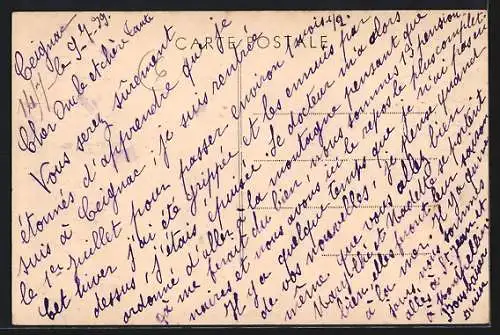 CARTE POSTALE
Ceignac
le 9.7.39.
Cher Oncle et chère Tante
Vous serez sûrement
étonnés d'apprendre que je
suis à Ceignac, je suis rentrée
le 1er Juillet pour passer environ 1 mois 1/2.
Cet hiver j'ai été grippée et les ennuis par
dessus, j'étais épuisée. Le docteur m'a alors
ordonné d'aller à la montagne pensant que
ça me ferait du bien, nous sommes 12 pension-
naires et nous avons ici le repos le plus complet.
Il y a quelque temps que je n'ai pas eu
de vos nouvelles! Je serai quand
même que vous allez bien.
Mady et Madeleine se portent
bien, elles
à la mer. Il y a
jours, nous sommes
allés à